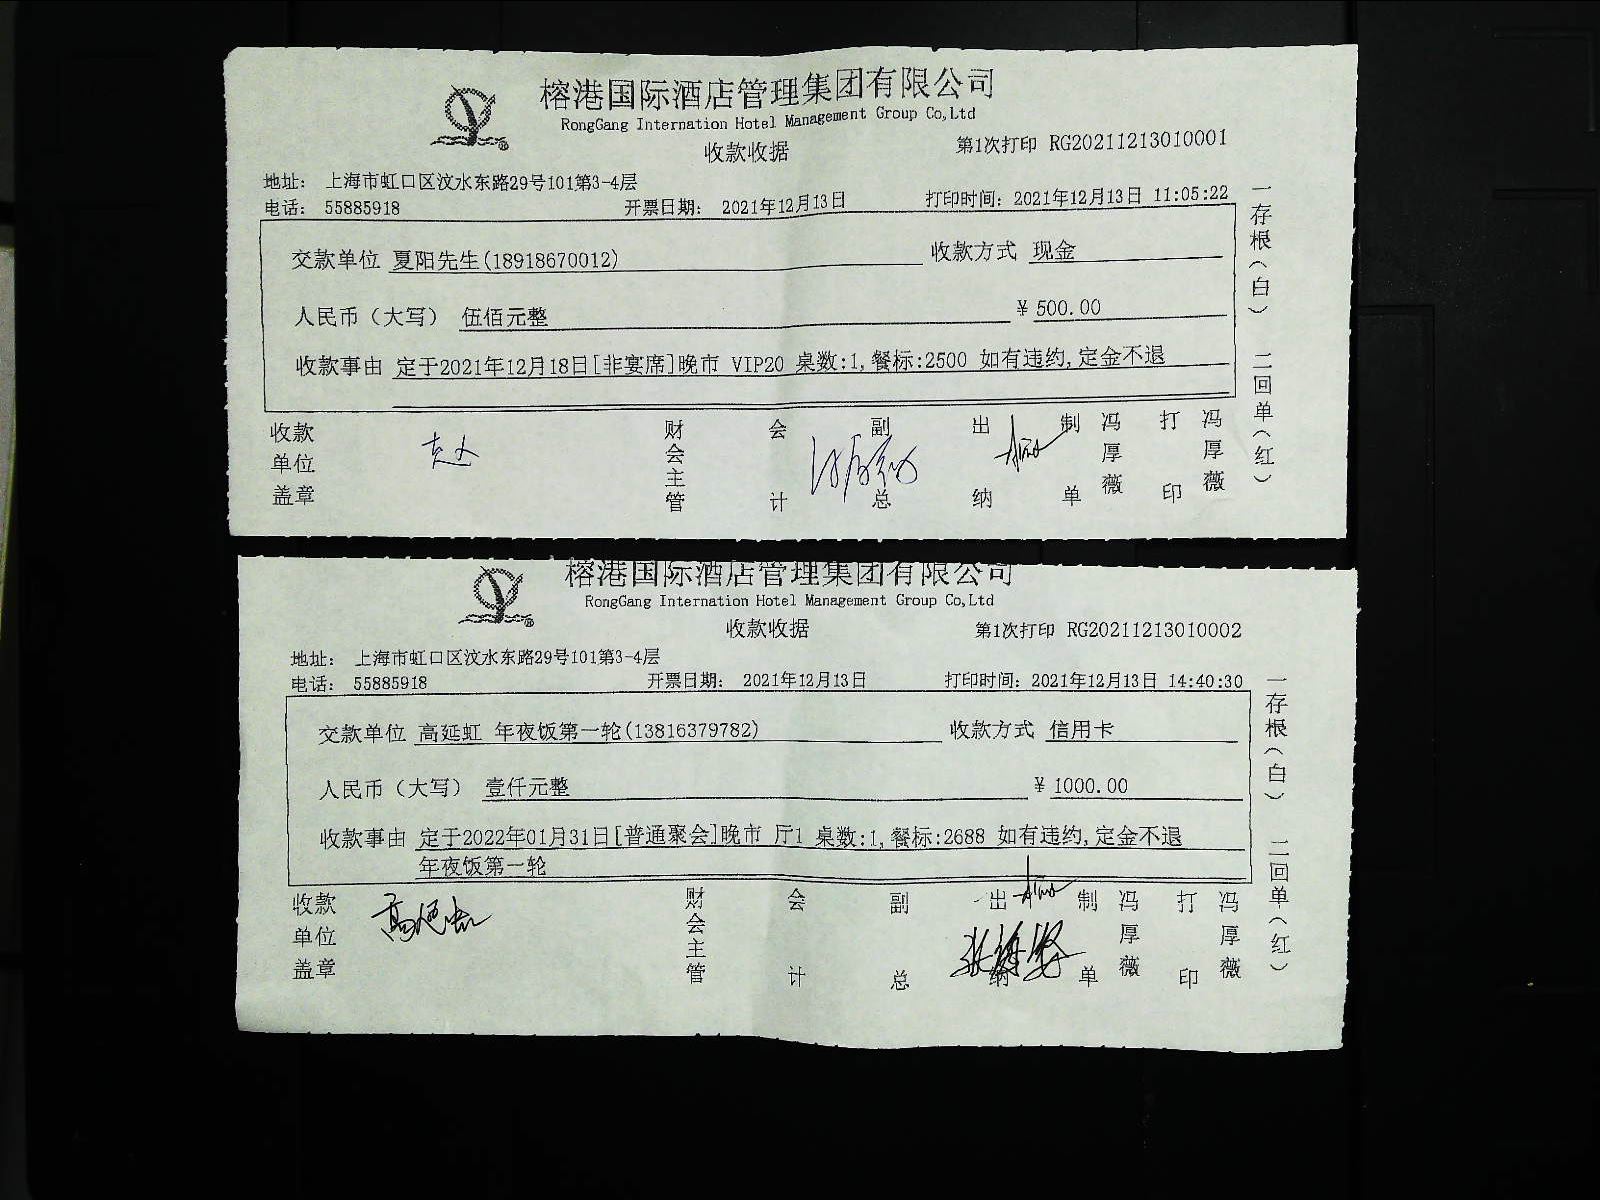 榕港国际酒店管理集团有限公司
RongGang Internation Hotel Management Group Co,Ltd
收款收据
第1次打印 RG20211213010001
地址： 上海市虹口区汶水东路29号101第3-4层
电话： 55885918 开票日期： 2021年12月13日 打印时间：2021年12月13日 11:05:22
交款单位 夏阳先生(18918670012) 收款方式 现金
人民币（大写） 伍佰元整 ¥ 500.00
收款事由 定于2021年12月18日[非宴席]晚市 VIP20 桌数:1,餐标:2500 如有违约,定金不退
收款单位盖章 财会主管 会计 副总 出纳 制单 冯厚薇 打印 冯厚薇
一存根（白） 二回单（红）
榕港国际酒店管理集团有限公司
RongGang Internation Hotel Management Group Co,Ltd
收款收据
第1次打印 RG20211213010002
地址： 上海市虹口区汶水东路29号101第3-4层
电话： 55885918 开票日期： 2021年12月13日 打印时间：2021年12月13日 14:40:30
交款单位 高延虹 年夜饭第一轮(13816379782) 收款方式 信用卡
人民币（大写） 壹仟元整 ¥ 1000.00
收款事由 定于2022年01月31日[普通聚会]晚市 厅1 桌数:1,餐标:2688 如有违约,定金不退
年夜饭第一轮
收款单位盖章 高延虹 财会主管 会计 副总 出纳 制单 冯厚薇 打印 冯厚薇
一存根（白） 二回单（红）